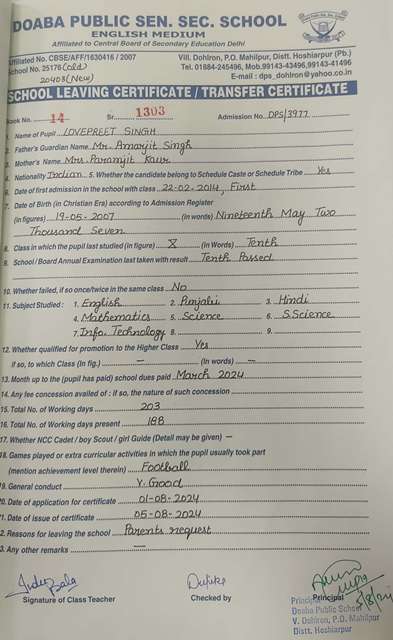 DOABA PUBLIC SEN. SEC. SCHOOL
ENGLISH MEDIUM
Affiliated to Central Board of Secondary Education Delhi
Affiliated No. CBSE/AFF/1630416 / 2007
Vill. Dohlron, P.O. Mahilpur, Distt. Hoshiarpur (Pb.)
School No. 25176 (old)
Tel. 01884-245496, Mob.99143-43496,99143-41496
20408 (New)
E-mail : dps_dohlron@yahoo.co.in
SCHOOL LEAVING CERTIFICATE / TRANSFER CERTIFICATE
Book No. 14 Sr. 1303 Admission No. DPS/3977
1. Name of Pupil LOVEPREET SINGH
2. Father's Guardian Name Mr. Amarjit Singh
3. Mother's Name Mrs. Paramjit Kaur
4. Nationality Indian 5. Whether the candidate belong to Schedule Caste or Schedule Tribe Yes
6. Date of first admission in the school with class 22-02-2014, First
7. Date of Birth (in Christian Era) according to Admission Register
(in figures) 19-05-2007 (in words) Nineteenth May Two
Thousand Seven
8. Class in which the pupil last studied (in figure) X (in Words) Tenth
9. School / Board Annual Examination last taken with result Tenth Passed
10. Whether failed, if so once/twice in the same class No
11. Subject Studied : 1. English 2. Punjabi 3. Hindi
4. Mathematics 5. Science 6. S.Science
7. Info. Technology 8. 9.
12. Whether qualified for promotion to the Higher Class Yes
if so, to which Class (In fig.) – (In words) –
13. Month up to the (pupil has paid) school dues paid March 2024
14. Any fee concession availed of : if so, the nature of such concession
15. Total No. of Working days 203
16. Total No. of Working days present 188
17. Whether NCC Cadet / boy Scout / girl Guide (Detail may be given) –
18. Games played or extra curricular activities in which the pupil usually took part
(mention achievement level therein) Football
19. General conduct V. Good
20. Date of application for certificate 01-08-2024
21. Date of issue of certificate 05-08-2024
22. Reasons for leaving the school Parents request
23. Any other remarks –
Signature of Class Teacher
Checked by
Principal
Principal
Doaba Public School
V. Dohlron, P.O. Mahilpur
Distt. Hoshiarpur